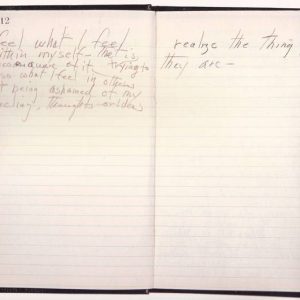 12
feel what I feel
within myself — that is,
aware of it, trying to
what I feel in others
being ashamed of my
feeling, thoughts or ideas
realize the thing
they are —